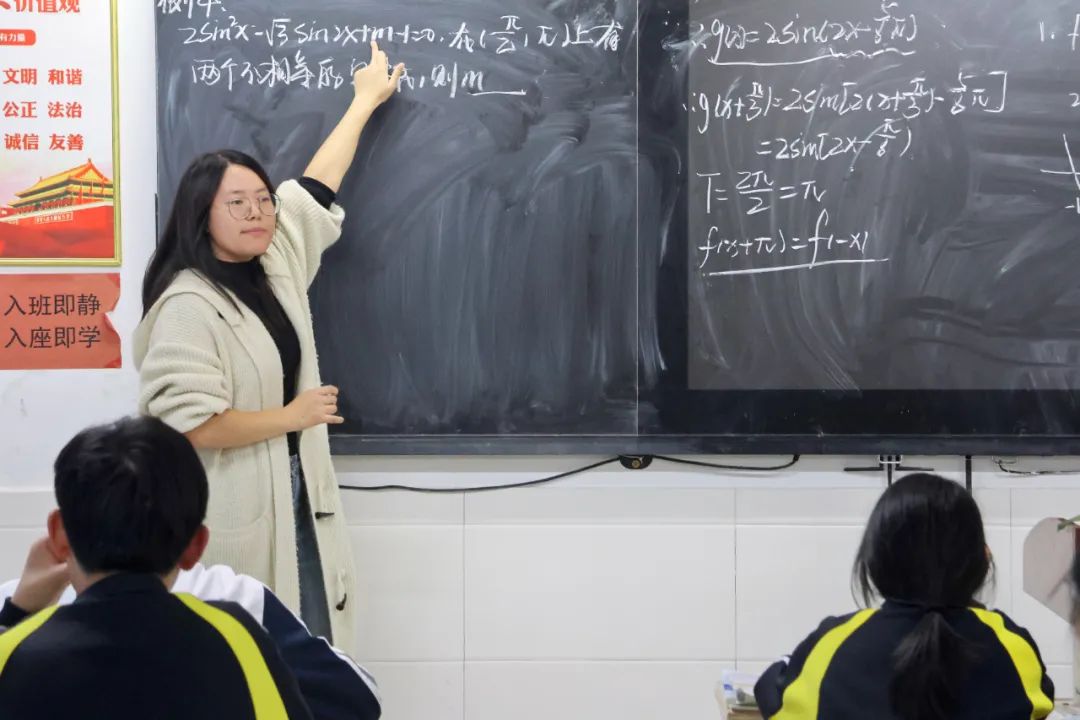 价值观
有力量
文明 和谐
公正 法治
诚信 友善
入班即静
入座即学
2sin²x-√3sin2x+m-1=0,在(π/2,π)上有
两个不相等的 ,则m
∴g(x)=2sin(2x-5/6π)
∴g(x+π/3)=2sin[2(x+π/3)-5/6π]
=2sin(2x-π/6)
T=2π/2=π
f(x+π)=f(-x)
1.f
2